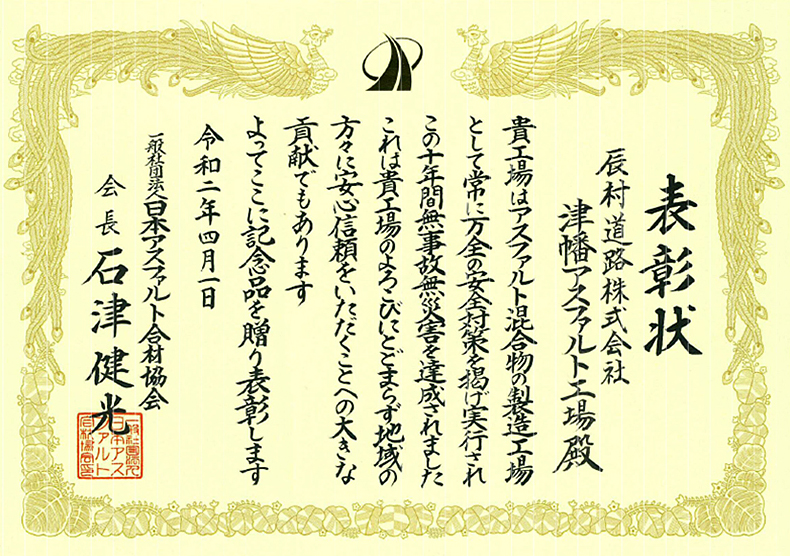 表彰状
辰村道路株式会社
津幡アスファルト工場殿
貴工場はアスファルト混合物の製造工場
として常に万全の安全対策を掲げ実行され
この十年間無事故無災害を達成されました
これは貴工場のよろこびにとどまらず地域の
方々に安心信頼をいただくことへの大きな
貢献でもあります
よってここに記念品を贈り表彰します
令和二年四月一日
一般社団法人日本アスファルト合材協会
会長 石津健光
一般社団法人
日本アス
ファルト
合材協会印